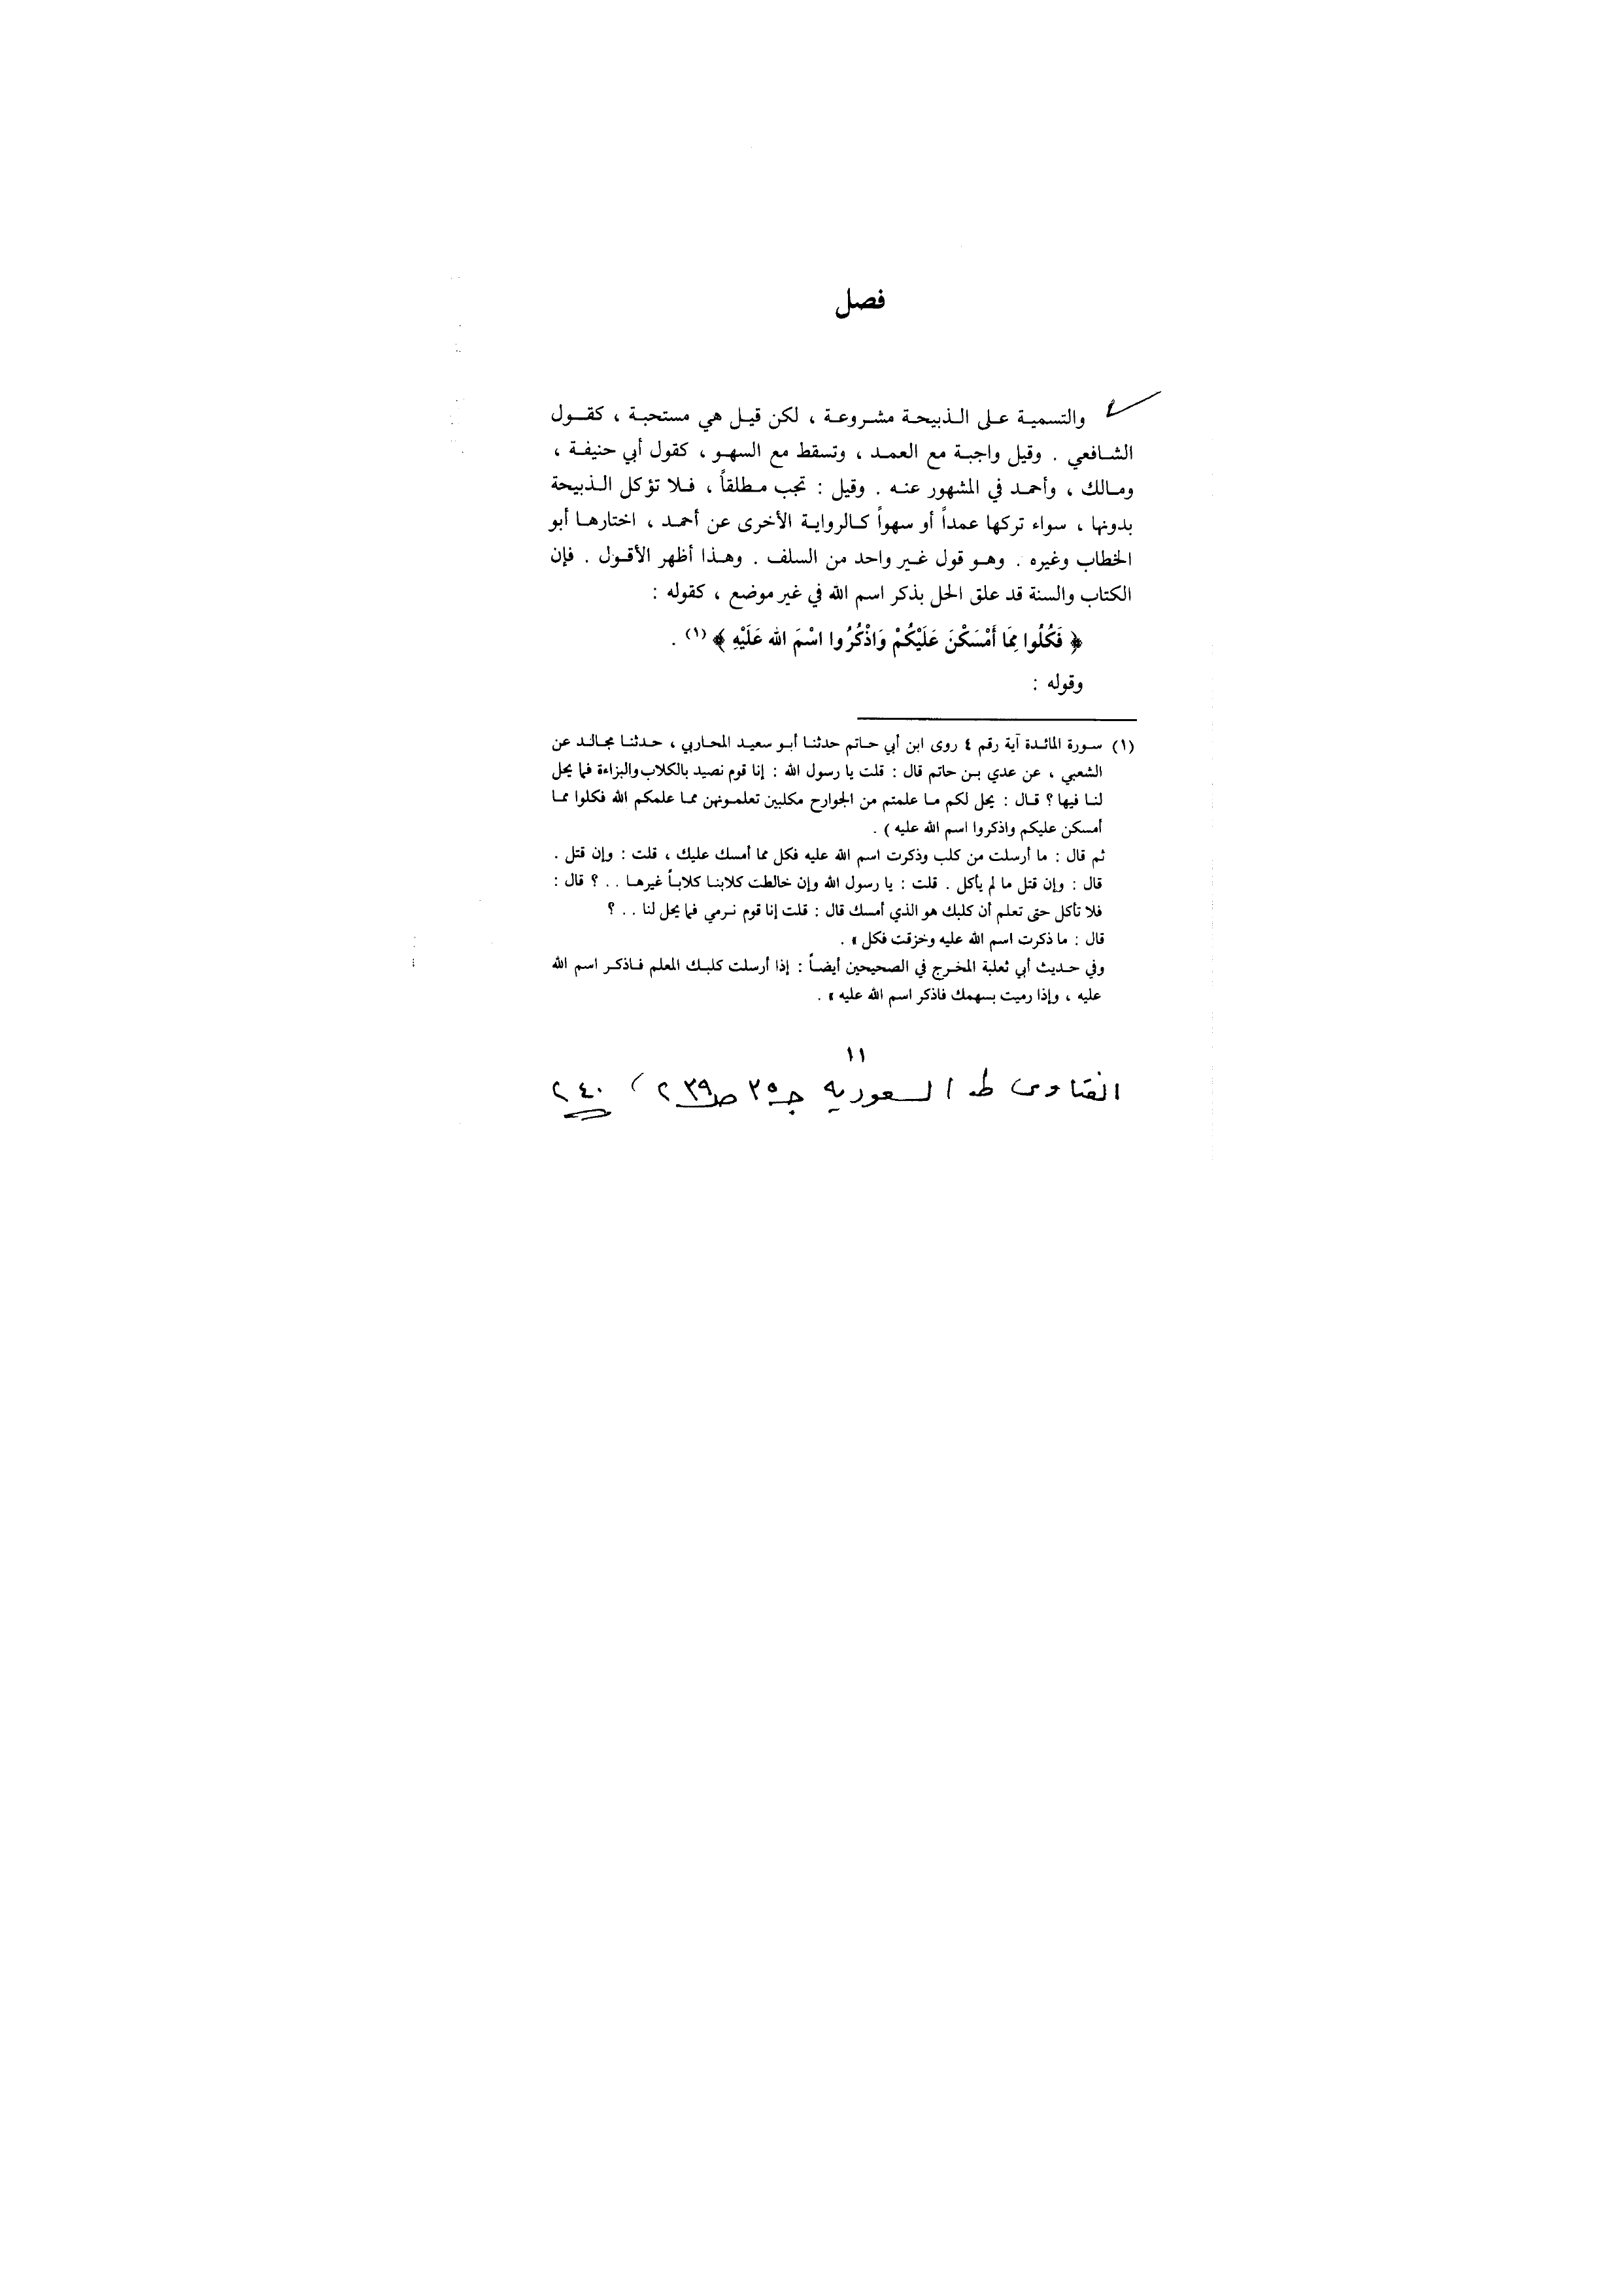 فصل
والتسمية على الذبيحة مشروعة ، لكن قيل هي مستحبة ، كقول
الشافعي . وقيل واجبة مع العمد ، وتسقط مع السهو ، كقول أبي حنيفة ،
ومالك ، وأحمد في المشهور عنه . وقيل : تجب مطلقاً ، فلا تؤكل الذبيحة
بدونها ، سواء تركها عمداً أو سهواً كالرواية الأخرى عن أحمد ، اختارها أبو
الخطاب وغيره . وهو قول غير واحد من السلف . وهذا أظهر الأقول . فإن
الكتاب والسنة قد علق الحل بذكر اسم الله في غير موضع ، كقوله :
﴿ فَكُلُوا مِمَا أَمْسَكْنَ عَلَيْكُمْ وَاذْكُرُوا اسْمَ الله عَلَيْهِ ﴾ (١) .
وقوله :
(١) سورة المائدة آية رقم ٤ روى ابن أبي حاتم حدثنا أبو سعيد المحاربي ، حدثنا مجالد عن
الشعبي ، عن عدي بن حاتم قال : قلت يا رسول الله : إنا قوم نصيد بالكلاب والبزاءة فما يحل
لنا فيها ؟ قال : يحل لكم ما علمتم من الجوارح مكلبين تعلمونهن مما علمكم الله فكلوا مما
أمسكن عليكم واذكروا اسم الله عليه ) .
ثم قال : ما أرسلت من كلب وذكرت اسم الله عليه فكل مما أمسك عليك ، قلت : وإن قتل .
قال : وإن قتل ما لم يأكل . قلت : يا رسول الله وإن خالطت كلابنا كلاباً غيرها . . ؟ قال :
فلا تأكل حتى تعلم أن كلبك هو الذي أمسك قال : قلت إنا قوم نرمي فما يحل لنا . . ؟
قال : ما ذكرت اسم الله عليه وخزقت فكل » .
وفي حديث أبي ثعلبة المخرج في الصحيحين أيضاً : إذا أرسلت كلبك المعلم فاذكر اسم الله
عليه ، وإذا رميت بسهمك فاذكر اسم الله عليه » .
١١
الفتاوى ط السعودية جـ ٣٥ صـ ٢٣٩ ، ٢٤٠